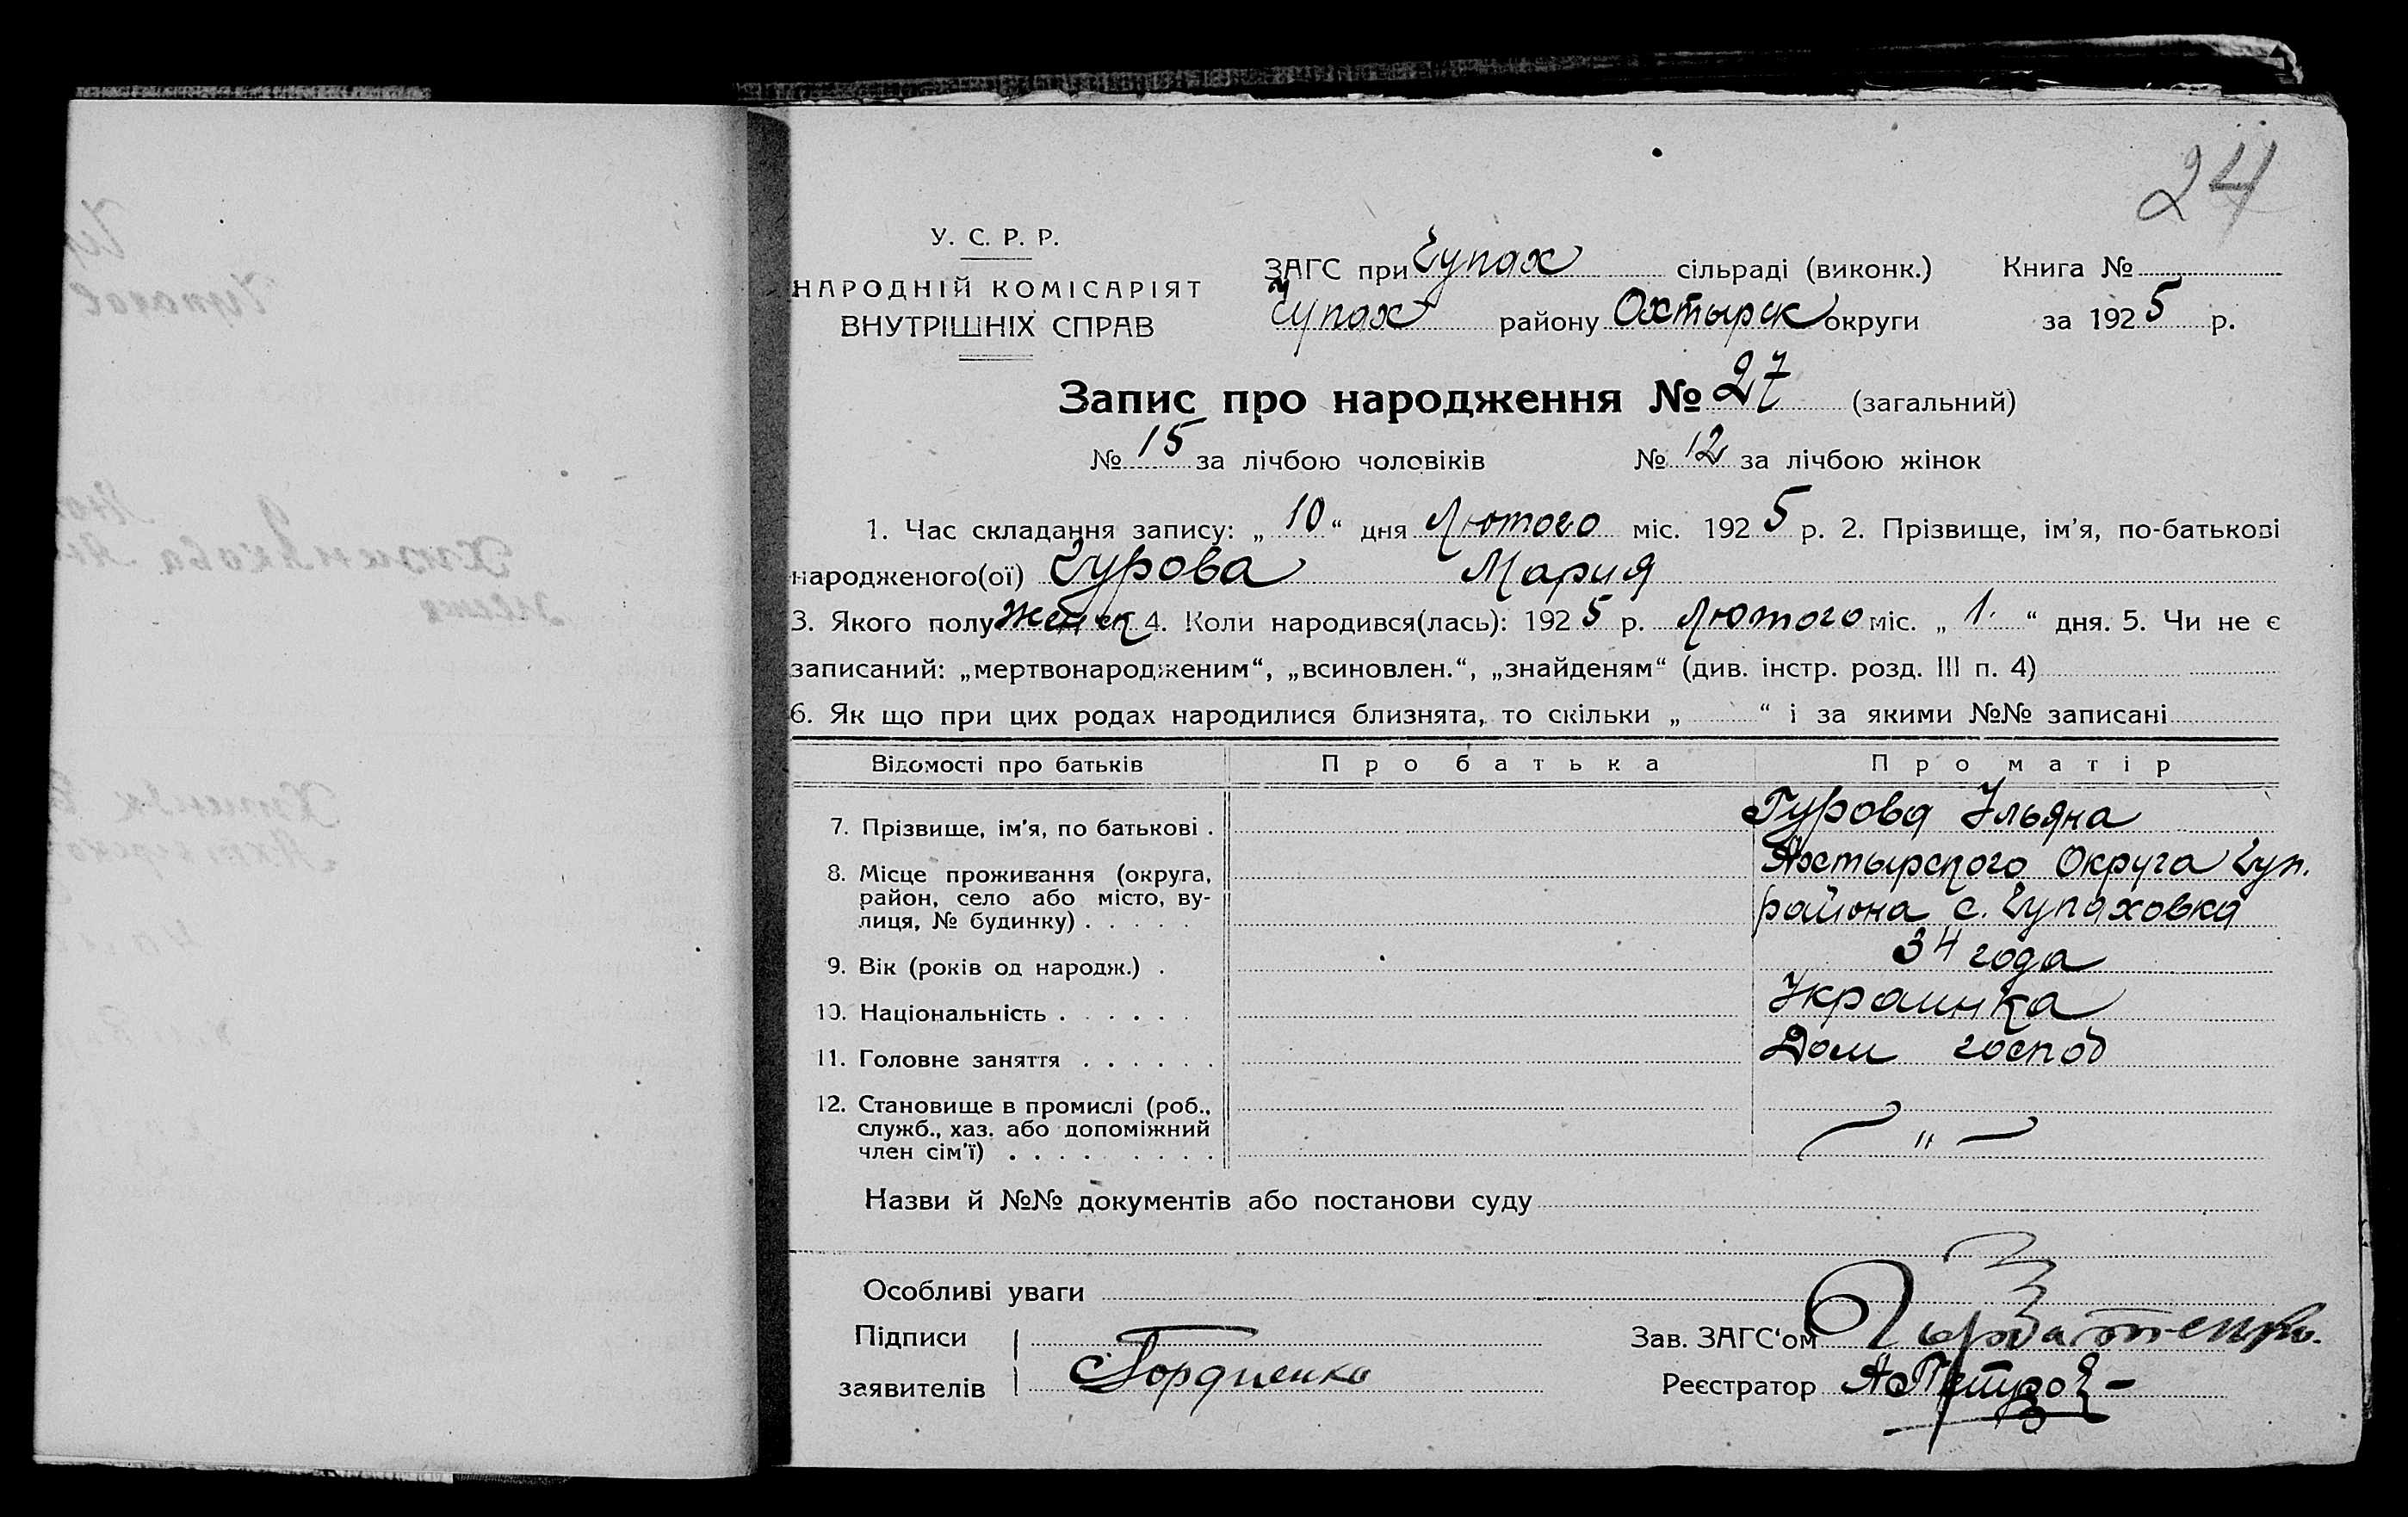 24
У. С. Р. Р.
НАРОДНІЙ КОМІСАРІЯТ
ВНУТРІШНІХ СПРАВ
ЗАГС при Чупах сільраді (виконк.) Книга №
Чупах району Охтырск округи за 1925 р.
Запис про народження № 27 (загальний)
№ 15 за лічбою чоловіків № 12 за лічбою жінок
1. Час складання запису: „ 10 “ дня Лютого міс. 1925 р. 2. Прізвище, ім'я, по-батькові
народженого(ої) Гурова Мария
3. Якого полу женск 4. Коли народився(лась): 1925 р. Лютого міс. „ 1 “ дня. 5. Чи не є
записаний: „мертвонародженим“, „всиновлен.“, „знайденям“ (див. інстр. розд. III п. 4)
6. Як що при цих родах народилися близнята, то скільки „ “ і за якими №№ записані
Відомості про батьків Про батька Про матір
7. Прізвище, ім'я, по батькові . Гурова Ульяна
8. Місце проживання (округа, Ахтырского Округа Чуп.
район, село або місто, ву-
лиця, № будинку) . . . . . района с. Чупаховка
9. Вік (років од народж.) . 34 года
10. Національність . . . . . . Украинка
11. Головне заняття . . . . . . Дом господ
12. Становище в промислі (роб.,
служб., хаз. або допоміжний
член сім'ї) . . . . . . . . . — " —
Назви й №№ документів або постанови суду
Особливі уваги
Підписи Зав. ЗАГС'ом
заявителів Гордиенко Реєстратор